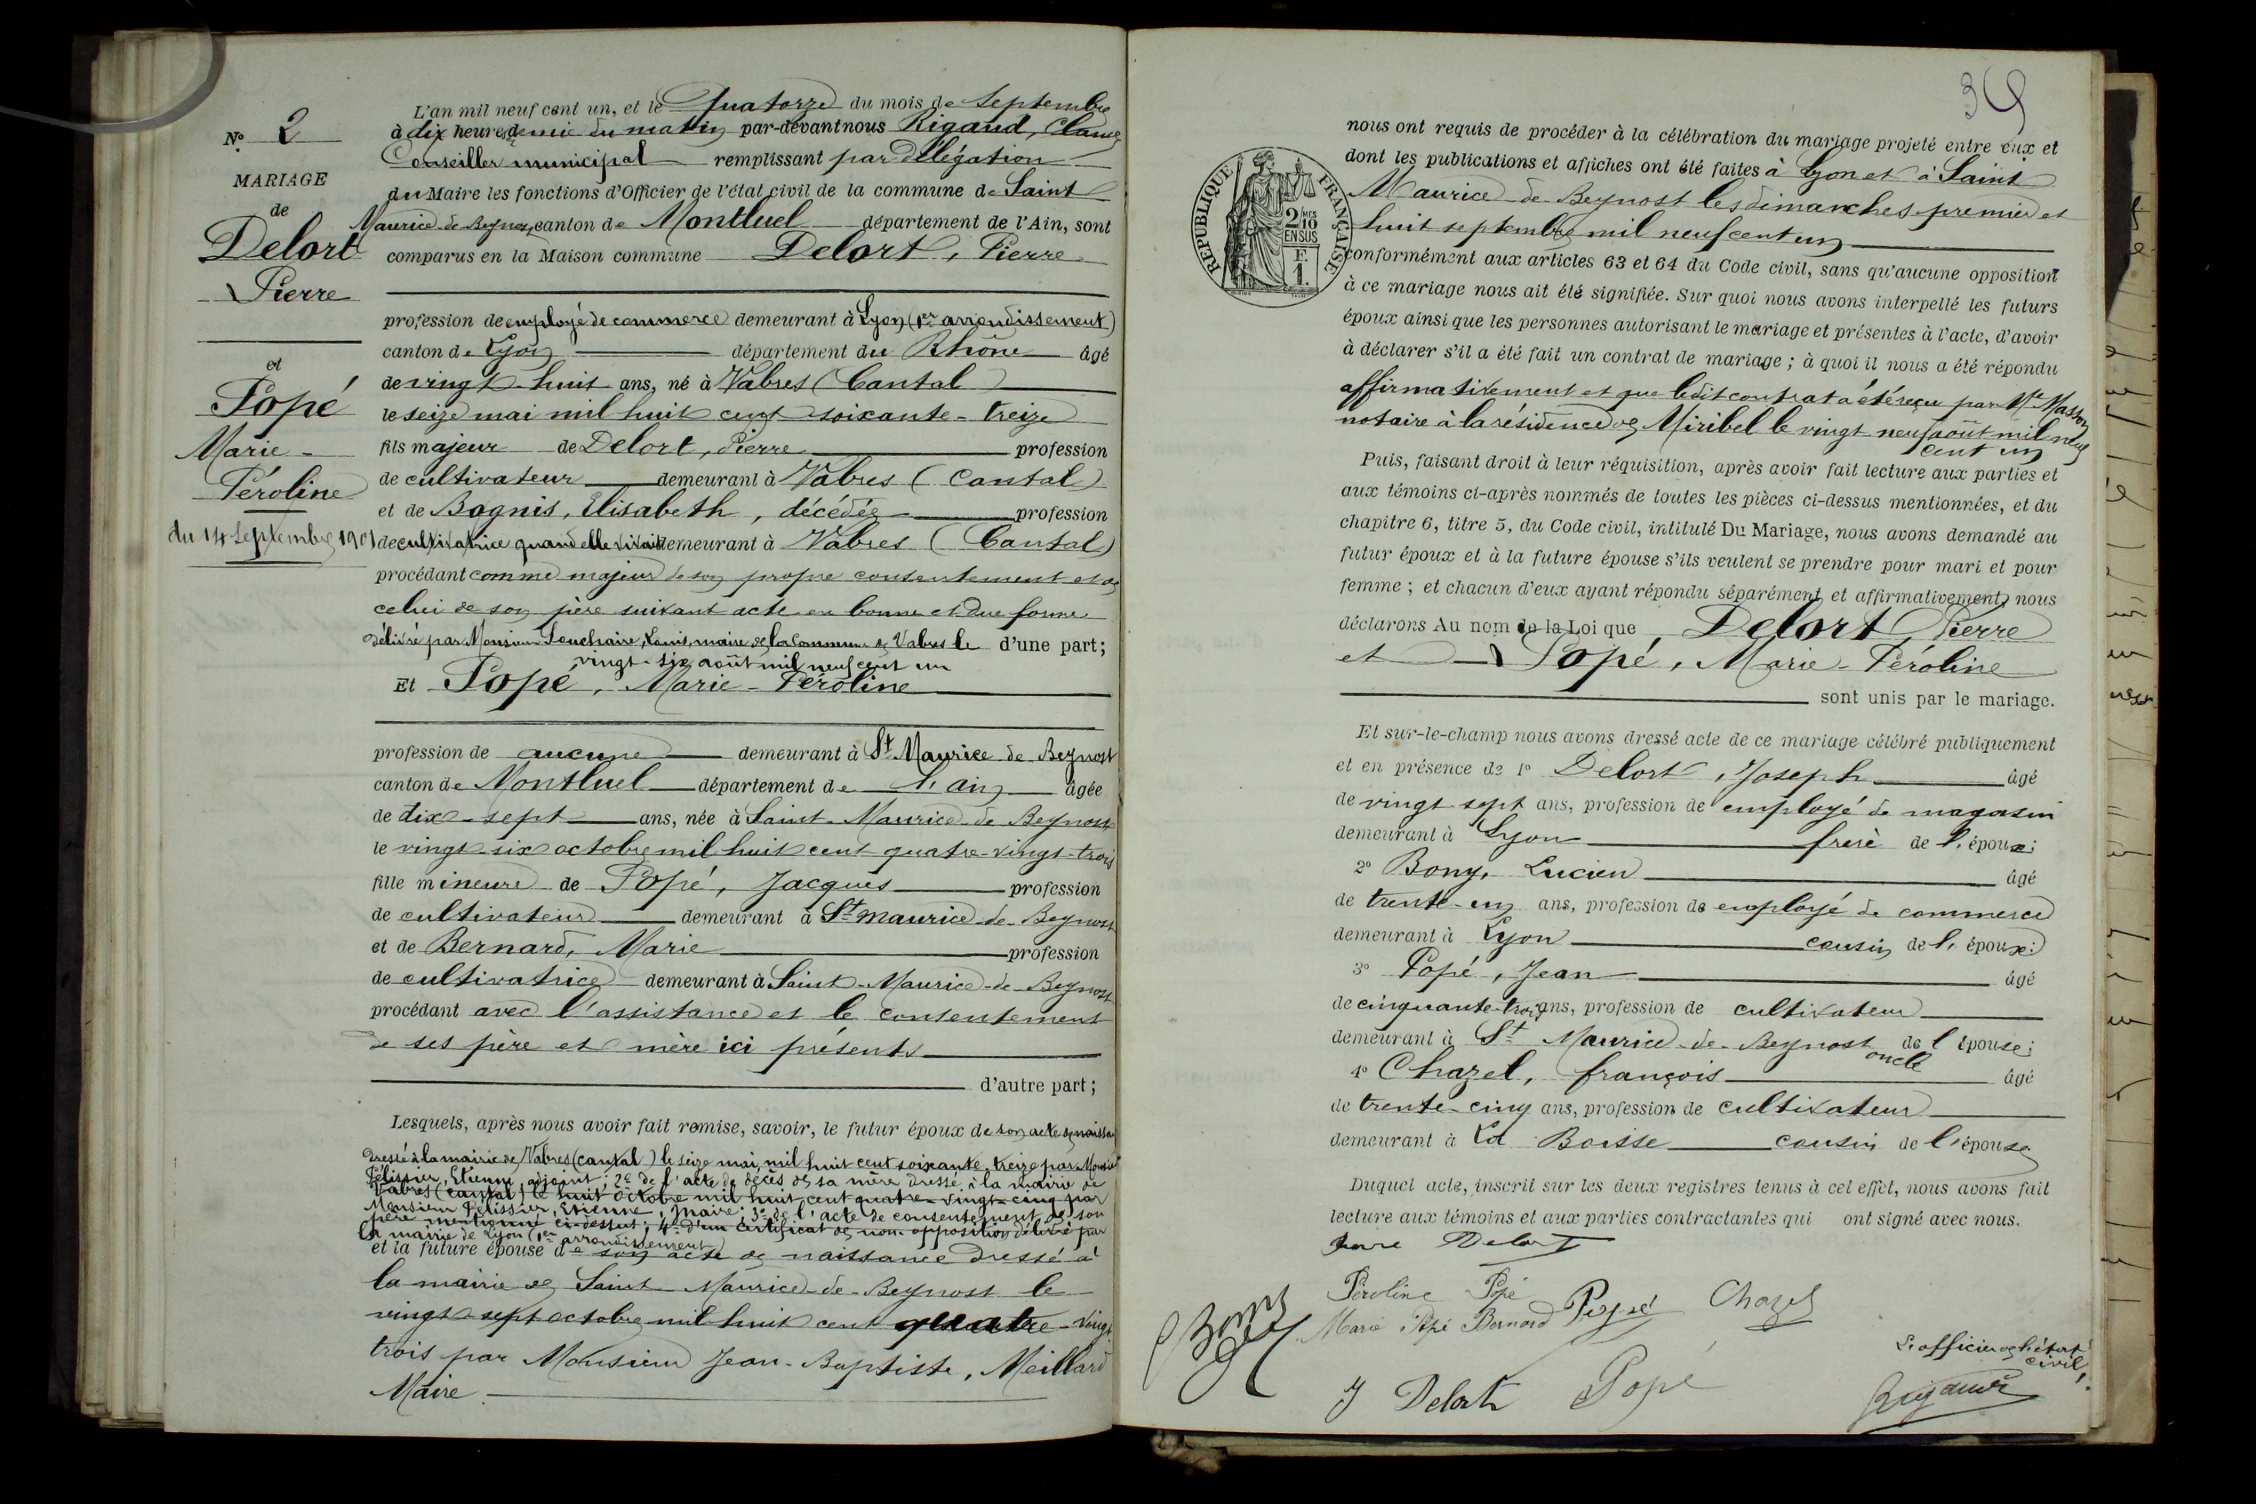 N.° 2
MARIAGE
de
Delort
Pierre
et
Popé
Marie-
Péroline
du 14 Septembre 1901
L'an mil neuf cent un, et le Quatorze du mois de Septembre
à dix heures & demie du matin par-devant nous Rigaud, Claude
Conseiller municipal remplissant par délégation
du Maire les fonctions d'Officier de l'état civil de la commune de Saint
Maurice-de-Beynost canton de Montluel département de l'Ain, sont
comparus en la Maison commune Delort, Pierre
profession de employé de commerce demeurant à Lyon (1er arrondissement)
canton de Lyon département du Rhône âgé
de vingt-huit ans, né à Vabres (Cantal)
le seize mai mil huit cent soixante-treize
fils majeur de Delort, Pierre profession
de cultivateur demeurant à Vabres (Cantal)
et de Bagnis, Elisabeth, décédée profession
de cultivatrice quand elle vivait demeurant à Vabres (Cantal)
procédant comme majeur de son propre consentement et de
celui de son père suivant acte en bonne et due forme
délivré par Monsieur Louis, maire de la commune de Vabres le d'une part;
vingt-six août mil neuf cent un
Et Popé, Marie-Péroline
profession de aucune demeurant à St Maurice-de-Beynost
canton de Montluel département de l'ain âgée
de dix-sept ans, née à Saint-Maurice-de-Beynost
le vingt-six octobre mil huit cent quatre-vingt-trois
fille mineure de Popé, Jacques profession
de cultivateur demeurant à St-maurice-de-Beynost
et de Bernard, Marie profession
de cultivatrice demeurant à Saint-Maurice-de-Beynost
procédant avec l'assistance et le consentement
de ses père et mère ici présents
d'autre part;
Lesquels, après nous avoir fait remise, savoir, le futur époux de son acte de naissance
dressé à la mairie de Vabres (cantal) le seize mai, mil huit cent soixante-treize par Monsieur
Pélissier, Etienne, adjoint; 2e de l'acte de décès de sa mère dressé à la mairie de
Vabres (cantal) le huit octobre mil huit cent quatre-vingt-cinq par
Monsieur Pélissier, Etienne, Maire; 3e de l'acte de consentement de son
père mentionné ci-dessus; 4e d'un certificat de non-opposition délivré par
la mairie de Lyon (1er arrondissement)
et la future épouse de son acte de naissance dressé à
la mairie de Saint-Maurice-de-Beynost le
vingt-sept octobre mil huit cent quatre-vingt
trois par Monsieur Jean-Baptiste, Meillard
Maire
RÉPUBLIQUE FRANÇAISE
2/10 MES
EN SUS
F.
1.
nous ont requis de procéder à la célébration du mariage projeté entre eux et
dont les publications et affiches ont été faites à Lyon et à Saint
Maurice-de-Beynost les dimanches premier et
huit septembre mil neuf cent un
conformément aux articles 63 et 64 du Code civil, sans qu'aucune opposition
à ce mariage nous ait été signifiée. Sur quoi nous avons interpellé les futurs
époux ainsi que les personnes autorisant le mariage et présentes à l'acte, d'avoir
à déclarer s'il a été fait un contrat de mariage; à quoi il nous a été répondu
affirmativement et que ledit contrat a été reçu par Me Masson
notaire à la résidence de Miribel le vingt neuf août mil neuf
cent un
Puis, faisant droit à leur réquisition, après avoir fait lecture aux parties et
aux témoins ci-après nommés de toutes les pièces ci-dessus mentionnées, et du
chapitre 6, titre 5, du Code civil, intitulé Du Mariage, nous avons demandé au
futur époux et à la future épouse s'ils veulent se prendre pour mari et pour
femme; et chacun d'eux ayant répondu séparément et affirmativement, nous
déclarons Au nom de la Loi que Delort, Pierre
et Popé, Marie-Péroline
sont unis par le mariage.
Et sur-le-champ nous avons dressé acte de ce mariage célébré publiquement
et en présence de 1° Delort, Joseph âgé
de vingt sept ans, profession de employé de magasin
demeurant à Lyon frère de l'époux;
2° Bony, Lucien âgé
de trente-un ans, profession de employé de commerce
demeurant à Lyon cousin de l'époux;
3° Popé, Jean âgé
de cinquante-trois ans, profession de cultivateur
demeurant à St Maurice-de-Beynost oncle de l'épouse;
4° Chazel, françois âgé
de trente-cinq ans, profession de cultivateur
demeurant à La Boisse cousin de l'épouse
Duquel acte, inscrit sur les deux registres tenus à cet effet, nous avons fait
lecture aux témoins et aux parties contractantes qui ont signé avec nous.
Pierre Delort
Péroline Popé
Marie Popé Bernard Popé Chazel
Bony
J Delort Popé
L'officier de l'état
civil,
Rigaud